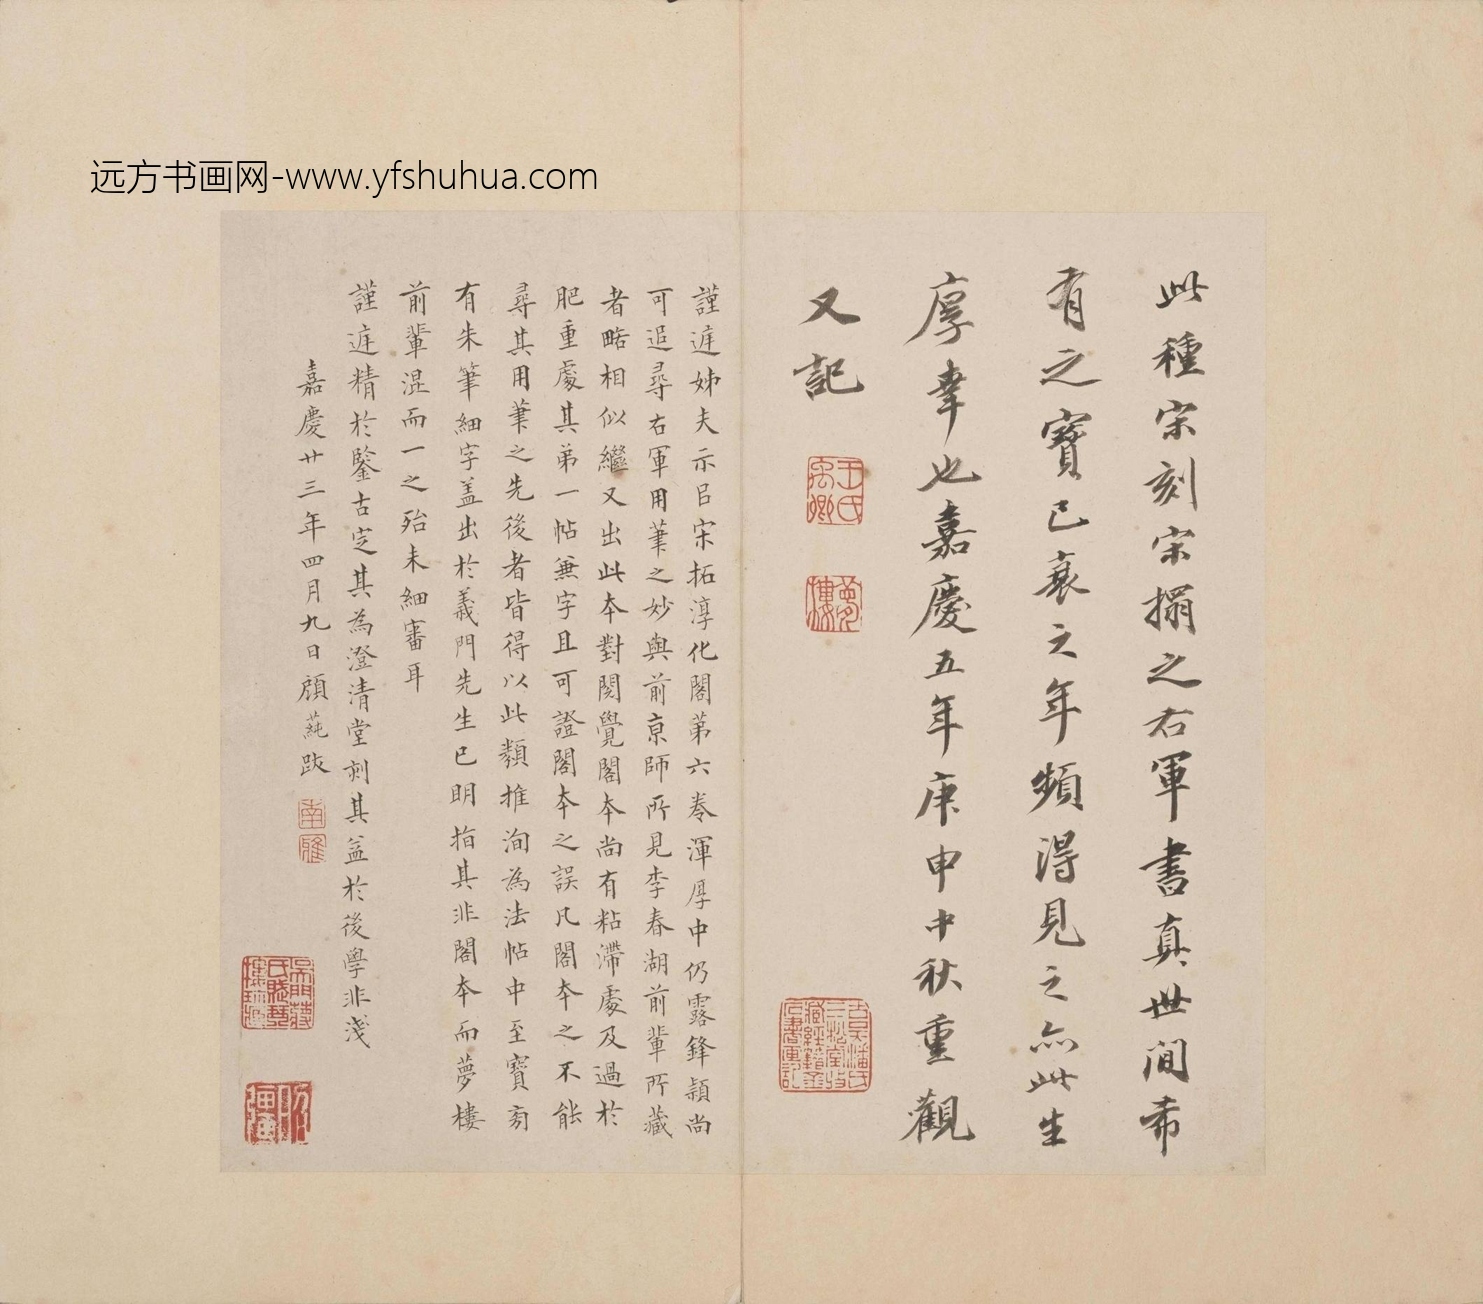 远方书画网-www.yfshuhua.com
此種宋刻宋搨之右軍書真世間希
有之寶已衰之年頻得見之亦此生
厚幸也嘉慶五年庚申中秋重觀
又記
王氏禹卿
夢樓
謹庭姊夫示臣宋拓淳化閣第六卷渾厚中仍露鋒穎尚
可追尋右軍用筆之妙與前京師所見李春湖前輩所藏
者略相似繼又出此本對閱覺閣本尚有粘滯處及過於
肥重處其弟一帖無字且可證閣本之誤凡閣本之不能
尋其用筆之先後者皆得以此類推洵為法帖中至寶旁
有朱筆細字盖出於義門先生已明指其非閣本而夢樓
前輩混而一之殆未細審耳
謹庭精於鑒古定其為澄清堂刻其益於後學非淺
嘉慶廿三年四月九日顧蒓跋
南雅